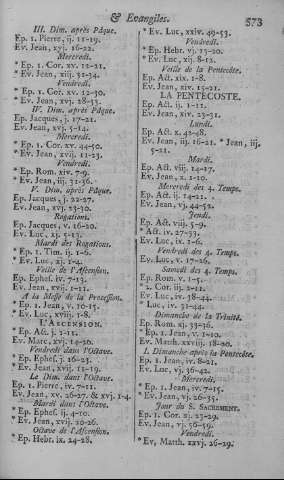 & Evangiles. 573
III. Dim. après Pâque.
Ep. 1. Pierre, ij. 11-19.
Ev. Jean, xvj. 16-22.
Mercredi.
* Ep. 1. Cor. xv. 12-21.
* Ev. Jean, xiij. 31-34.
Vendredi.
* Ep. 1. Cor. xv. 22-30.
* Ev. Jean, xvij. 28-33.
IV. Dim. après Pâque.
Ep. Jacques, j. 17-21.
Ev. Jean, xvj. 5-14.
Mercredi.
* Ep. 1. Cor. xv. 44-50.
* Ev. Jean, xvij. 11-23.
Vendredi.
* Ep. Rom. xiv. 7-9.
* Ev. Jean, iij. 31-36.
V. Dim. après Pâque.
Ep. Jacques, j. 22-27.
Ev. Jean, xvj. 23-30.
Rogations.
Ep. Jacques, v. 16-20.
Ev. Luc, xj. 5-13.
Mardi des Rogations.
* Ep. 1. Tim. ij. 1-6.
* Ev. Luc, xj. 1-4.
Veille de l'Ascension.
Ep. Ephes. iv. 7-13.
Ev. Jean, xvij. 1-11.
A la Messe de la Procession.
* Ep. 1. Jean, v. 10-15.
* Ev. Luc, xviij. 1-8.
L'ASCENSION.
* Ep. Act. j. 1-11.
Ev. Marc, xvj. 14-20.
Vendredi dans l'Octave.
* Ep. Ephes. j. 16-23.
* Ev. Jean, xvij. 11-19.
Le Dim. dans l'Octave.
Ep. 1. Pierre, iv. 7-11.
Ev. Jean, xv. 26-27. & xvj. 1-4.
Mardi dans l'Octave.
* Ep. Ephes. ij. 4-10.
* Ev. Jean, xvij. 20-26.
Octave de l'Ascension.
* Ep. Hebr. ix. 24-28.
* Ev. Luc, xxiv. 49-53.
Vendredi.
* Ep. Hebr. vj. 13-20.
* Ev. Luc, xij. 8-12.
Veille de la Pentecôte.
Ep. Act. xix. 1-8.
Ev. Jean, xiv. 15-21.
LA PENTECOSTE.
Ep. Act. ij. 1-11.
Ev. Jean, xiv. 23-31.
Lundi.
Ep. Act. x. 42-48.
Ev. Jean, iij. 16-21. * Jean, iij.
5-21.
Mardi.
Ep. Act. viij. 14-17.
Ev. Jean, x. 1-10.
Mercredi des 4. Temps.
Ep. Act. ij. 14-21.
Ev. Jean, vj. 44-52.
Jeudi.
Ep. Act. viij. 5-9.
* Act. iv. 27-33.
Ev. Luc, ix. 1-6.
Vendredi des 4. Temps.
Ev. Luc, v. 17-26.
Samedi des 4. Temps.
Ep. Rom. v. 1-5.
* 2. Cor. iij. 2-11.
Ev. Luc, iv. 38-44.
* Luc, iv. 31-44.
Dimanche de la Trinité.
Ep. Rom. xj. 33-36.
* Ep. 1. Jean, v. 1-10.
Ev. Matth. xxviij. 18-20.
I. Dimanche après la Pentecôte.
Ep. 1. Jean, iv. 8-21.
Ev. Luc, vj. 36-42.
Mercredi.
* Ep. 1. Jean, iv. 7-15.
* Ev. Jean, vj. 26-35.
Jour du S. SACREMENT.
Ep. 1. Cor. xj. 23-29.
Ev. Jean, vj. 56-59.
Vendredi.
* Ev, Matth. xxvj. 26-29.